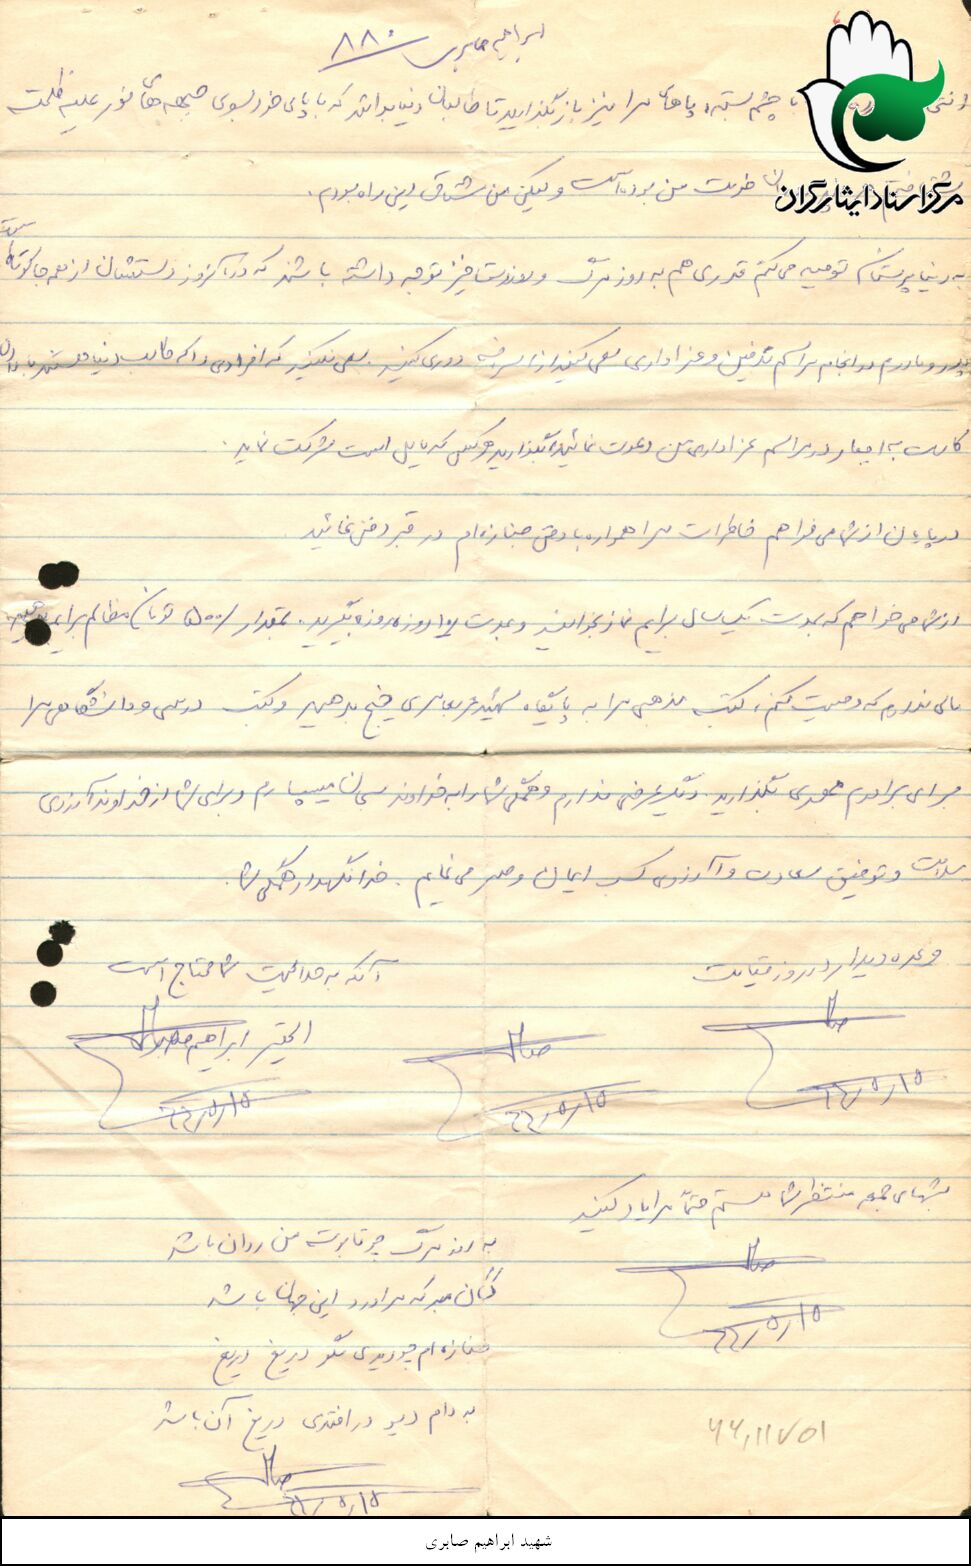 ابراهیم صابری ۸۸۰
با چشم بسته، پاهای مرا نیز باز بگذارید تا طالبان دنیا بدانند که با پای خود بسوی جبهه های نور علیه ظلمت
مرکز اسناد ایثارگران
خدمت من بوده است ولیکن من مشتاق این راه بودم.
به دنیا پرستان توصیه می کنم قدری هم به روز مرگ و روز رستاخیز توجه داشته باشند که در آنروز دستشان از همه جا کوتاه است
پدر و مادرم در انجام مراسم تدفین و عزاداری سعی کنید از اسراف دوری کنید. سعی نکنید که افرادی را که طالب دنیا هستند با دادن
کارت به اجبار در مراسم عزاداری من دعوت نمائید، بگذارید هر کس که مایل است شرکت نماید.
در پایان از شما می خواهم خاطرات مرا همراه با دفن جنازه ام در قبر دفن نمائید.
از شما می خواهم که بمدت یک سال برایم نماز بخوانید و بمدت روز روزه بگیرید. بمقدار ۵۰۰ تومان مظالم برایم بدهید
مالی ندارم که وصیت کنم، کتب مذهبی مرا به پایگاه شهید بدهید و کتب درسی و دانشگاهی مرا
برای برادرم مهدی بگذارید. دیگر عرضی ندارم و همگی شما را به خداوند سبحان میسپارم و برای شما از خداوند آرزوی
سلامت و توفیق سعادت و آرزوی کسب ایمان و صبر می نمایم. خدا نگهدار همگی شما.
وعده دیدار در روز قیامت
آنکه به دعای شما محتاج است
الحقیر ابراهیم صابری
۶۶/۵/۱۵
۶۶/۵/۱۵
۶۶/۵/۱۵
شبهای جمعه منتظر شما هستم حتماً مرا یاد کنید
۶۶/۵/۱۵
به روز مرگ چو تابوت من روان باشد
گمان مبر که مرا درد این جهان باشد
جنازه ام چو دیدی مگو دریغ دریغ
به دام دیو در افتدی دریغ آن باشد
۶۶/۵/۱۵
۶۶,۱۱۷۵۱
شهید ابراهیم صابری